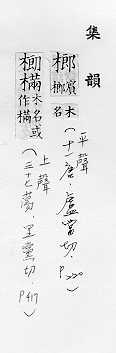 集韻
榔 檳榔木名 平聲(十一唐.盧當切.P220)
木名或作樠 上聲(三十七蕩.里黨切.P417)